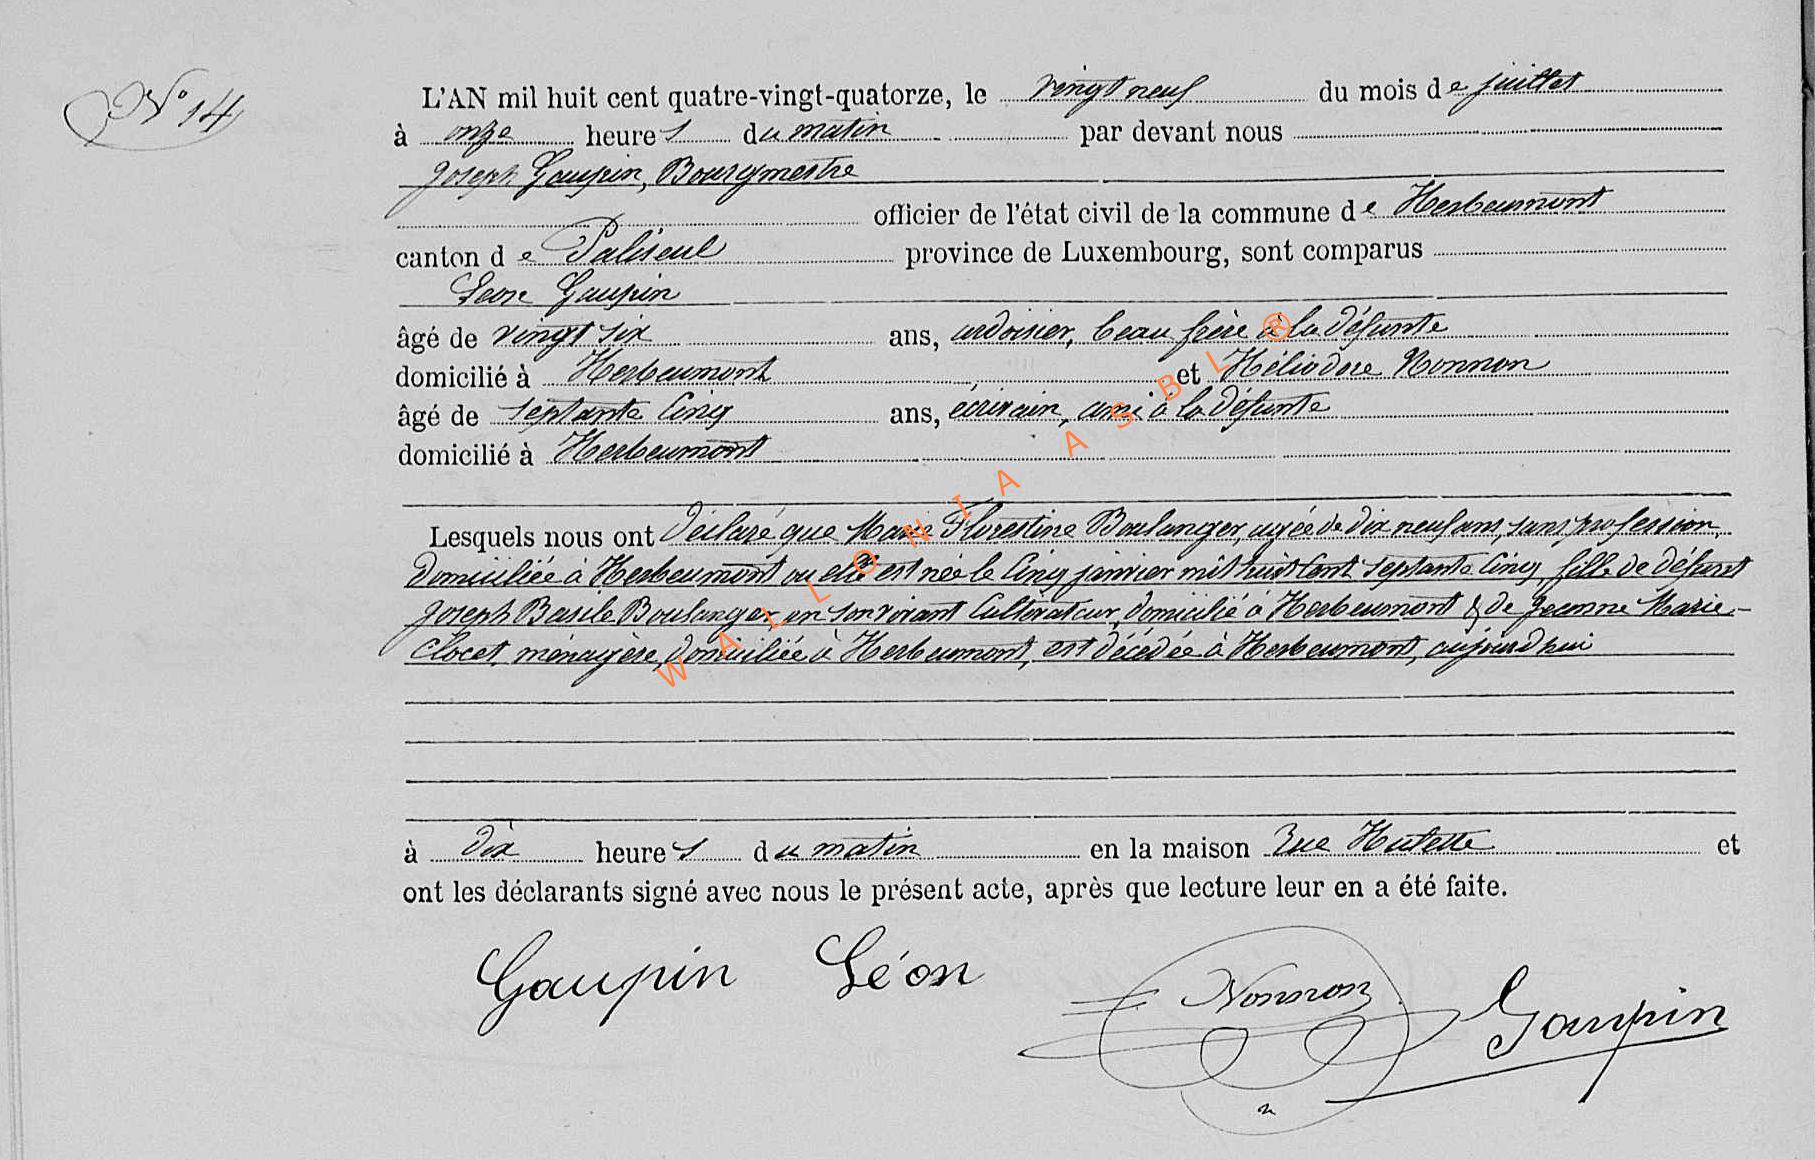 N° 14
L'AN mil huit cent quatre-vingt-quatorze, le vingt neuf du mois de juillet
à onze heures du matin par devant nous
Joseph Gaupin, Bourgmestre
officier de l'état civil de la commune de Herbeumont
canton de Paliseul province de Luxembourg, sont comparus
Léon Gaupin
âgé de vingt six ans, ardoisier, beau frère à la défunte
domicilié à Herbeumont et Héliodore Nonnon
âgé de septante cinq ans, écrivain, ami à la défunte
domicilié à Herbeumont
Lesquels nous ont déclaré que Marie Florestine Boulanger, agée de dix neuf ans, sans profession,
domiciliée à Herbeumont ou elle est née le cinq janvier mil huit cent septante cinq, fille de défunt
Joseph Basile Boulanger, en son vivant cultivateur, domicilié à Herbeumont & de Jeanne Marie
Clocet, ménagère, domiciliée à Herbeumont, est décédée à Herbeumont, aujourd'hui
à dix heures du matin en la maison Rue Hutette et
ont les déclarants signé avec nous le présent acte, après que lecture leur en a été faite.
Gaupin Léon Nonnon Gaupin
WALLONIA ASBL ®